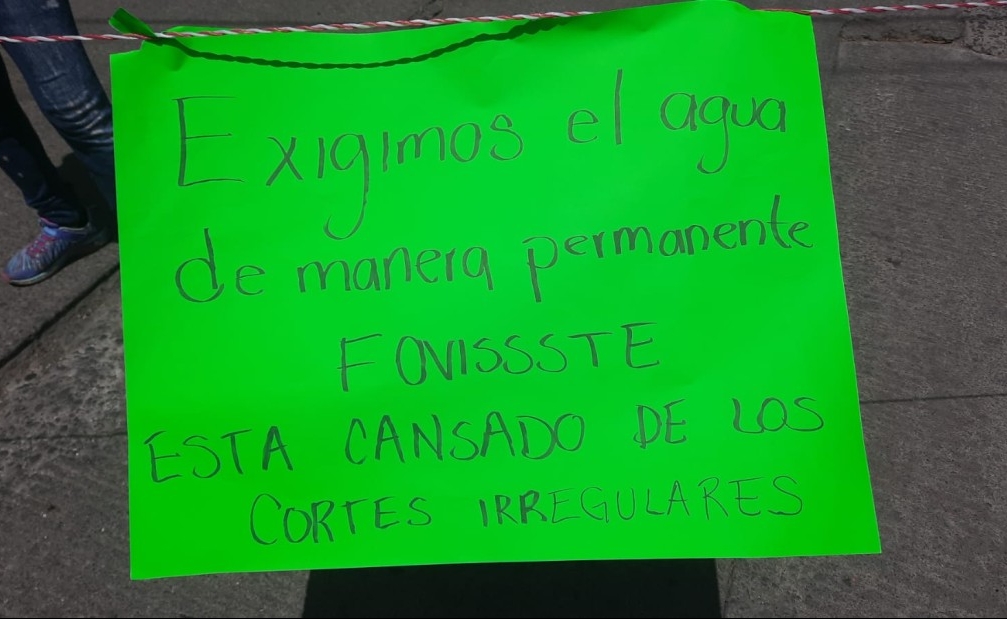 Exigimos el agua
de manera permanente
FOVISSSTE
ESTA CANSADO DE LOS
CORTES IRREGULARES